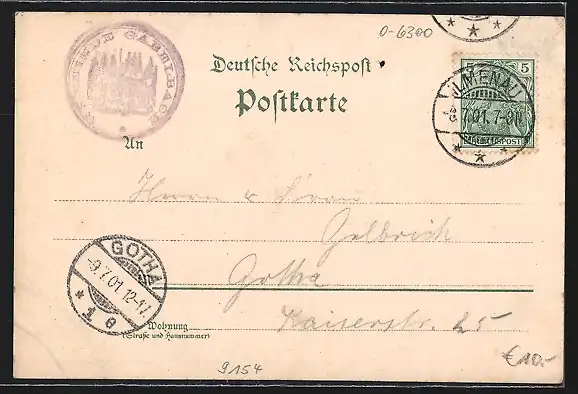 O-6300
GEMEINDE GABELBACH
Deutsche Reichspost
Postkarte
5 5
REICHSPOST
ILMENAU
8.7.01. 7-8N
An
Herrn u Frau
Gelbrich
Gotha
Kaiserstr. 25
GOTHA
-9.7.01.12-1N
1 e
Wohnung
(Straße und Hausnummer)
9154
€10.-